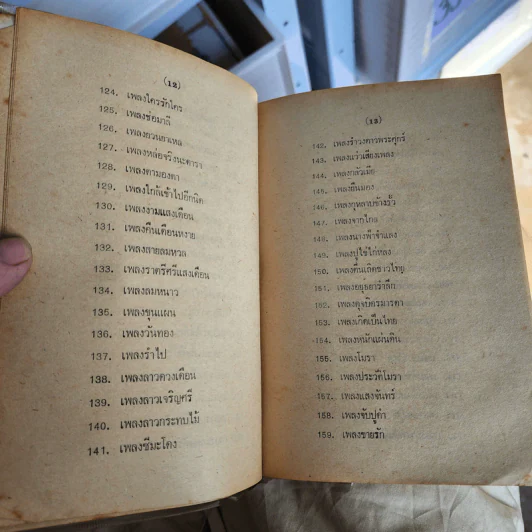 (12)
124. เพลงใครรักใคร
125. เพลงช่อมาลี
126. เพลงกวนยาเหล
127. เพลงหล่อจริงนะดารา
128. เพลงตามองตา
129. เพลงใกล้เข้าไปอีกนิด
130. เพลงงามแสงเดือน
131. เพลงคืนเดือนหงาย
132. เพลงสายลมหวล
133. เพลงราตรีศรีแสงเดือน
134. เพลงลมหนาว
135. เพลงขุนแผน
136. เพลงวันทอง
137. เพลงรำไป
138. เพลงลาวดวงเดือน
139. เพลงลาวเจริญศรี
140. เพลงลาวกระทบไม้
141. เพลงซีมะโดง
(13)
142. เพลงรำวงดาวพระศุกร์
143. เพลงแว่วเสียงเพลง
144. เพลงกลัวเมีย
145. เพลงยืนมอง
146. เพลงกุหลาบข้างรั้ว
147. เพลงจากไกล
148. เพลงนางฟ้าจำแลง
149. เพลงปูไข่ไก่หลง
150. เพลงตื่นเถิดชาวไทย
151. เพลงอยุธยารำลึก
152. เพลงดุจบิดรมารดา
153. เพลงเกิดเป็นไทย
154. เพลงหนักแผ่นดิน
155. เพลงโมรา
156. เพลงประวัติโมรา
157. เพลงแสงจันทร์
158. เพลงจับปูดำ
159. เพลงชายรัก